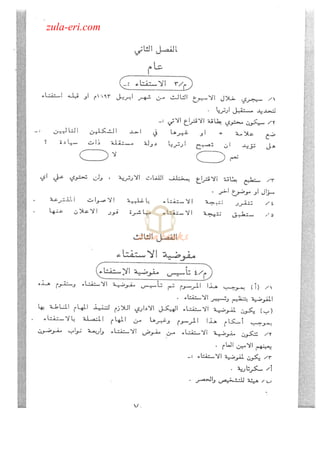 zula-eri.com
الفصل الثاني
عام
م/٣ الاستفتاء :-
١/ سيجري خلال الاسبوع الثالث من شهر ابريل ١٩٩٣م او قبله استفتاء
لتحديد مستقبل ارتريا .
٢/ سيكون محتوي بطاقة الاقتراع الاتي :-
ضع علامة × او غيرها في احد الشكلين التاليين :-
هل تؤيد ان تصبح ارتريا دولة مستقلة ذات سيادة ؟
نعم لا
٣/ ستطبع بطاقة الاقتراع بمختلف اللغات الارترية ، ولن تحتوي علي اي
سؤال او موضوع اخر .
٤/ تتقرر نتيجة الاستفتاء باغلبية الاصوات المقترعة .
٥/ ستطبق نتيجة الاستفتاء مباشرة فور الاعلان عنها .
الفصل الثالث
مفوضية الاستفتاء
م/٤ تأسيس مفوضية الإستفتاء
١/ (أ) بموجب هذا المرسوم تم تأسيس مفوضية الاستفتاء وستقوم هذه
المفوضية بتنظيم وتسيير الاستفتاء .
(ب) يكون لمفوضية الاستفتاء الهيكل الاداري اللازم لتنفيذ المهام المناطة بها
بموجب أحكام هذا المرسوم وغيرها من المهام المتصلة بالاستفتاء .
٢/ تتكون مفوضية الاستفتاء من مفوض الاستفتاء واربعة نواب مفوضون
يعينهم الامين العام .
٣/ يكون لمفوضية الاستفتاء :-
أ/ سكرتارية .
ب/ هيئة للتشخيص والحصر .
٧